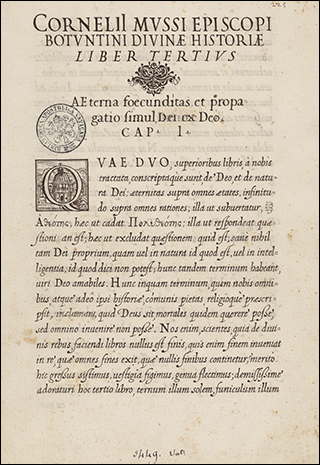 CORNELII MVSSI EPISCOPI
BOTVNTINI DIVINÆ HISTORIÆ
LIBER TERTIVS
AEterna foecunditas et propa
gatio simul Dei ex Deo,
CAP. I.
QVAE DVO, superioribus libris, à nobis
tractata, conscriptaque sunt de Deo, et de natu
ra Dei; aeternitas supra omnes aetates, infinitu
do supra omnes rationes; illa ut subvertatur,
haec ut cadat illa ut respondeat quae
stioni, an est; haec ut excludat quaestionem; quid est; eane nihil
tam Dei proprium, quam uel in natura id quod est, uel in intel
ligentia, id quod dici non potest; hunc tandem terminum habeant,
uiri Deo amabiles. Hunc inquam terminum, quem nobis omni
bus atque adeo ipsi historiae, comunis pietas religioque praescri
psit, inclamans, quid Deus sit mortales quidem querere posse,
sed omnino inuenire non posse. Nos enim, scientes, quia de diui
nis rebus, faciendi libros nullus est finis, quis enim finem inueniat
in re, quae omnes fines exit, quae nullis finibus continetur, merito
hic gressus sistimus, uestigia figimus, genua flectimus; demississime
adoraturi hoc tertio libro, ternum illum solem, funiculum illum
5449. Vat.